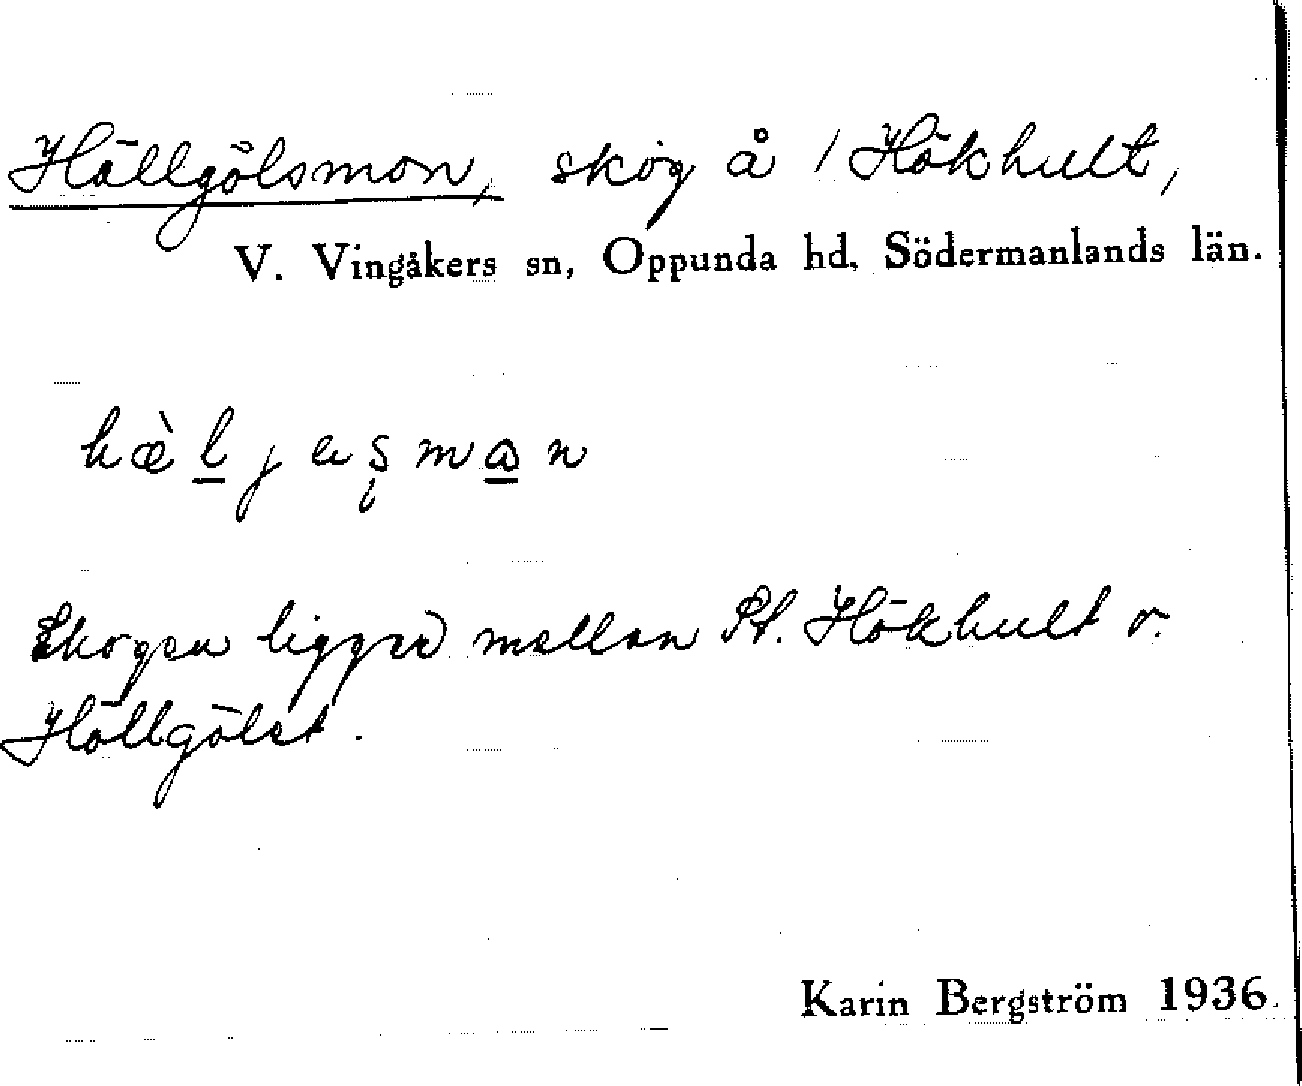 Hällgölsmon, skog å 1 Hökhult,
V. Vingåkers sn, Oppunda hd, Södermanlands län.
Skogen ligger mellan St. Hökhult o.
Hällgölet.
Karin Bergström 1936.